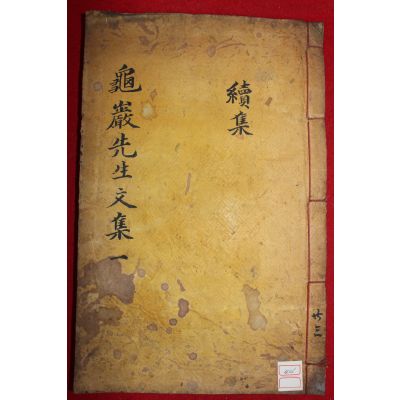 龜巖先生文集一
續集
共三